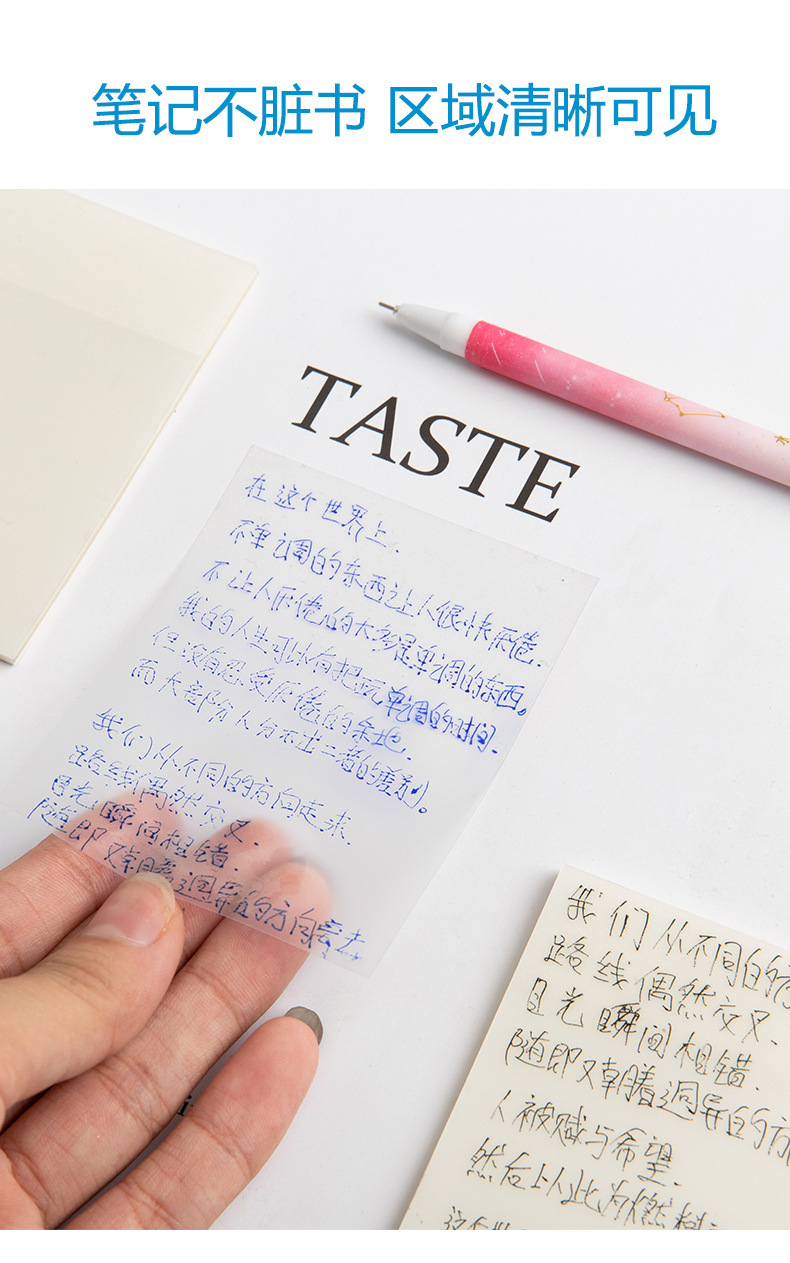 笔记不脏书 区域清晰可见
TASTE
在这个世界上.
不单调的东西让人很快厌倦.
不让人厌倦的大多是单调的东西。
我的人生可以有把玩单调的时间.
但没有忍受厌倦的余地.
而大部分人分不出二者的差别。
我们从不同的方向走来.
路线偶然交叉.
目光瞬间相错.
随即又朝着迥异的方向离去.
我们从不同的方
路线偶然交叉.
目光瞬间相错.
随即又朝着迥异的方
人被赋与希望.
然后上从此为燃料